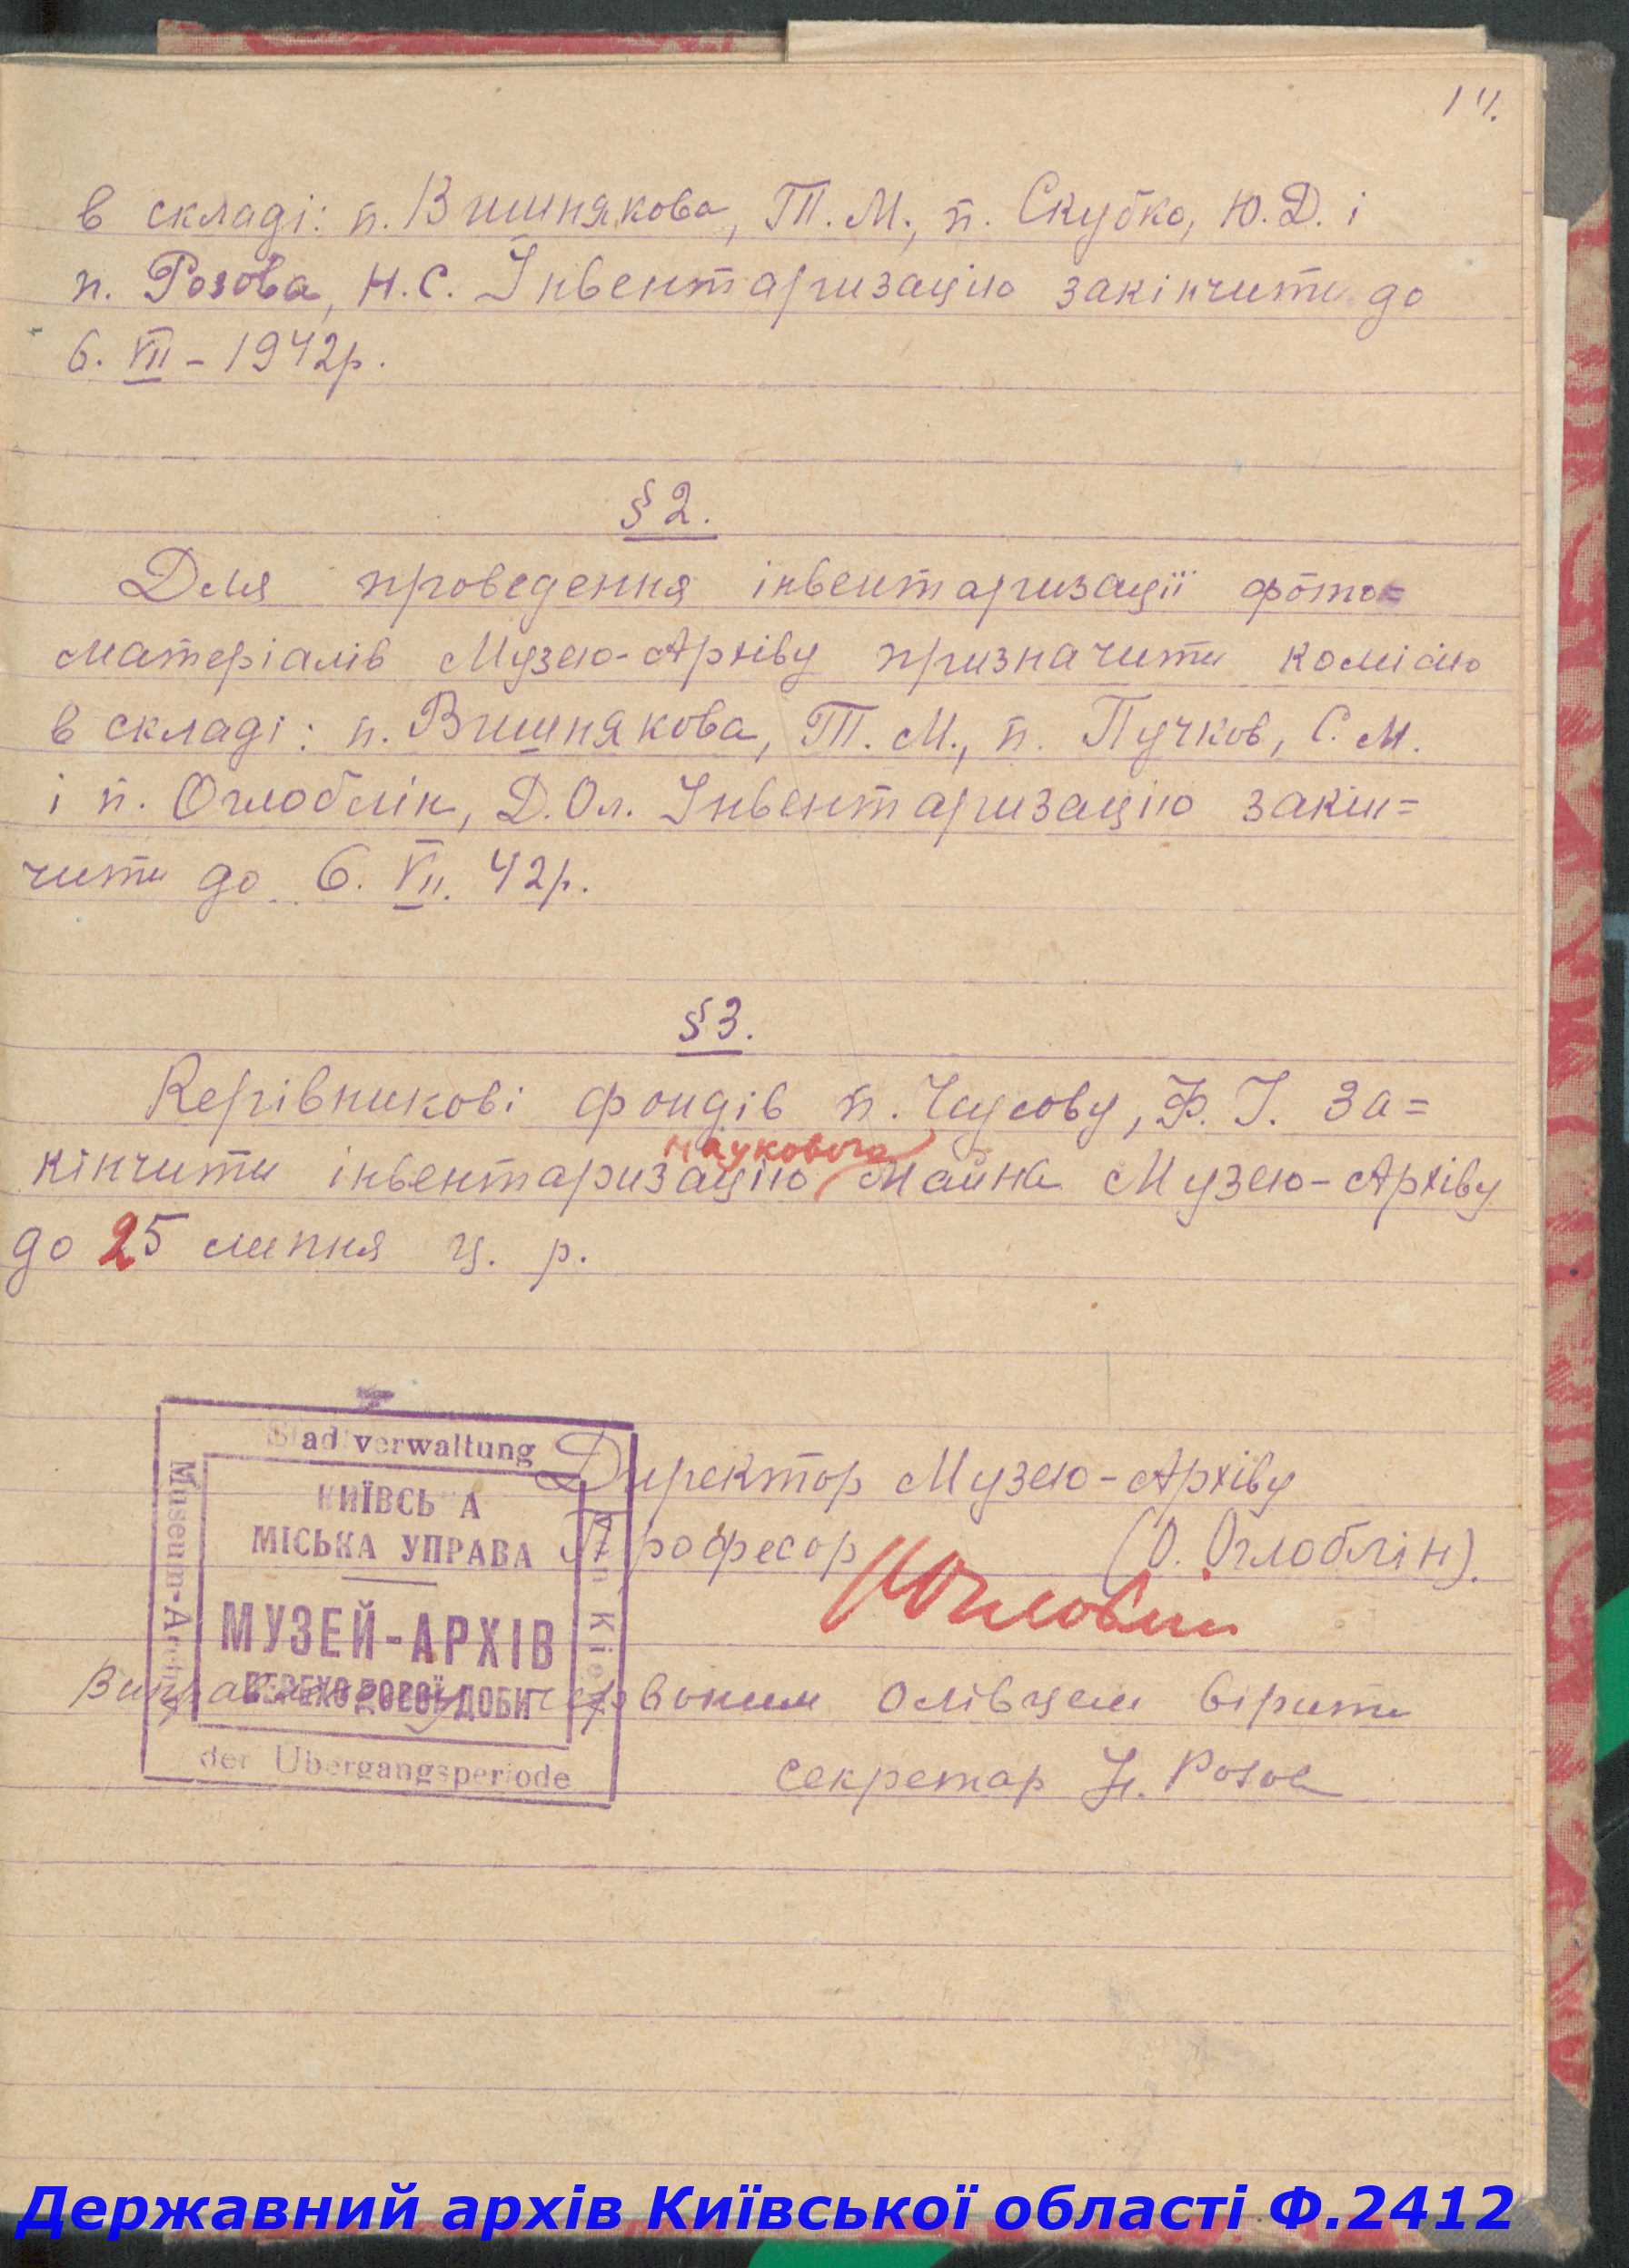 14.
в складі: п. Вишнякова, Т. М., п. Скубко, Ю. Д. і
п. Розова, Н. С. Інвентаризацію закінчити до
6. VII – 1942р.
§ 2.
Для проведення інвентаризації фото=
матеріалів Музею-Архіву призначити комісію
в складі: п. Вишнякова, Т. М., п. Пучков, С. М.
і п. Оглоблін, Д. Ол. Інвентаризацію закін=
чити до 6. VII. 42р.
§ 3.
Керівникові фондів п. Ф. І. за=
наукового
кінчити інвентаризацію майна Музею-Архіву
до 25 липня ц. р.
Директор Музею-Архіву
Професор (О. Оглоблін).
червоним олівцем вірити
секретар Н. Розов
Stadtverwaltung
КИЇВСЬКА
МІСЬКА УПРАВА
МУЗЕЙ-АРХІВ
ПЕРЕХОДОВОЇ ДОБИ
Museum-Archiv
Kiew
der Übergangsperiode
Державний архів Київської області Ф.2412